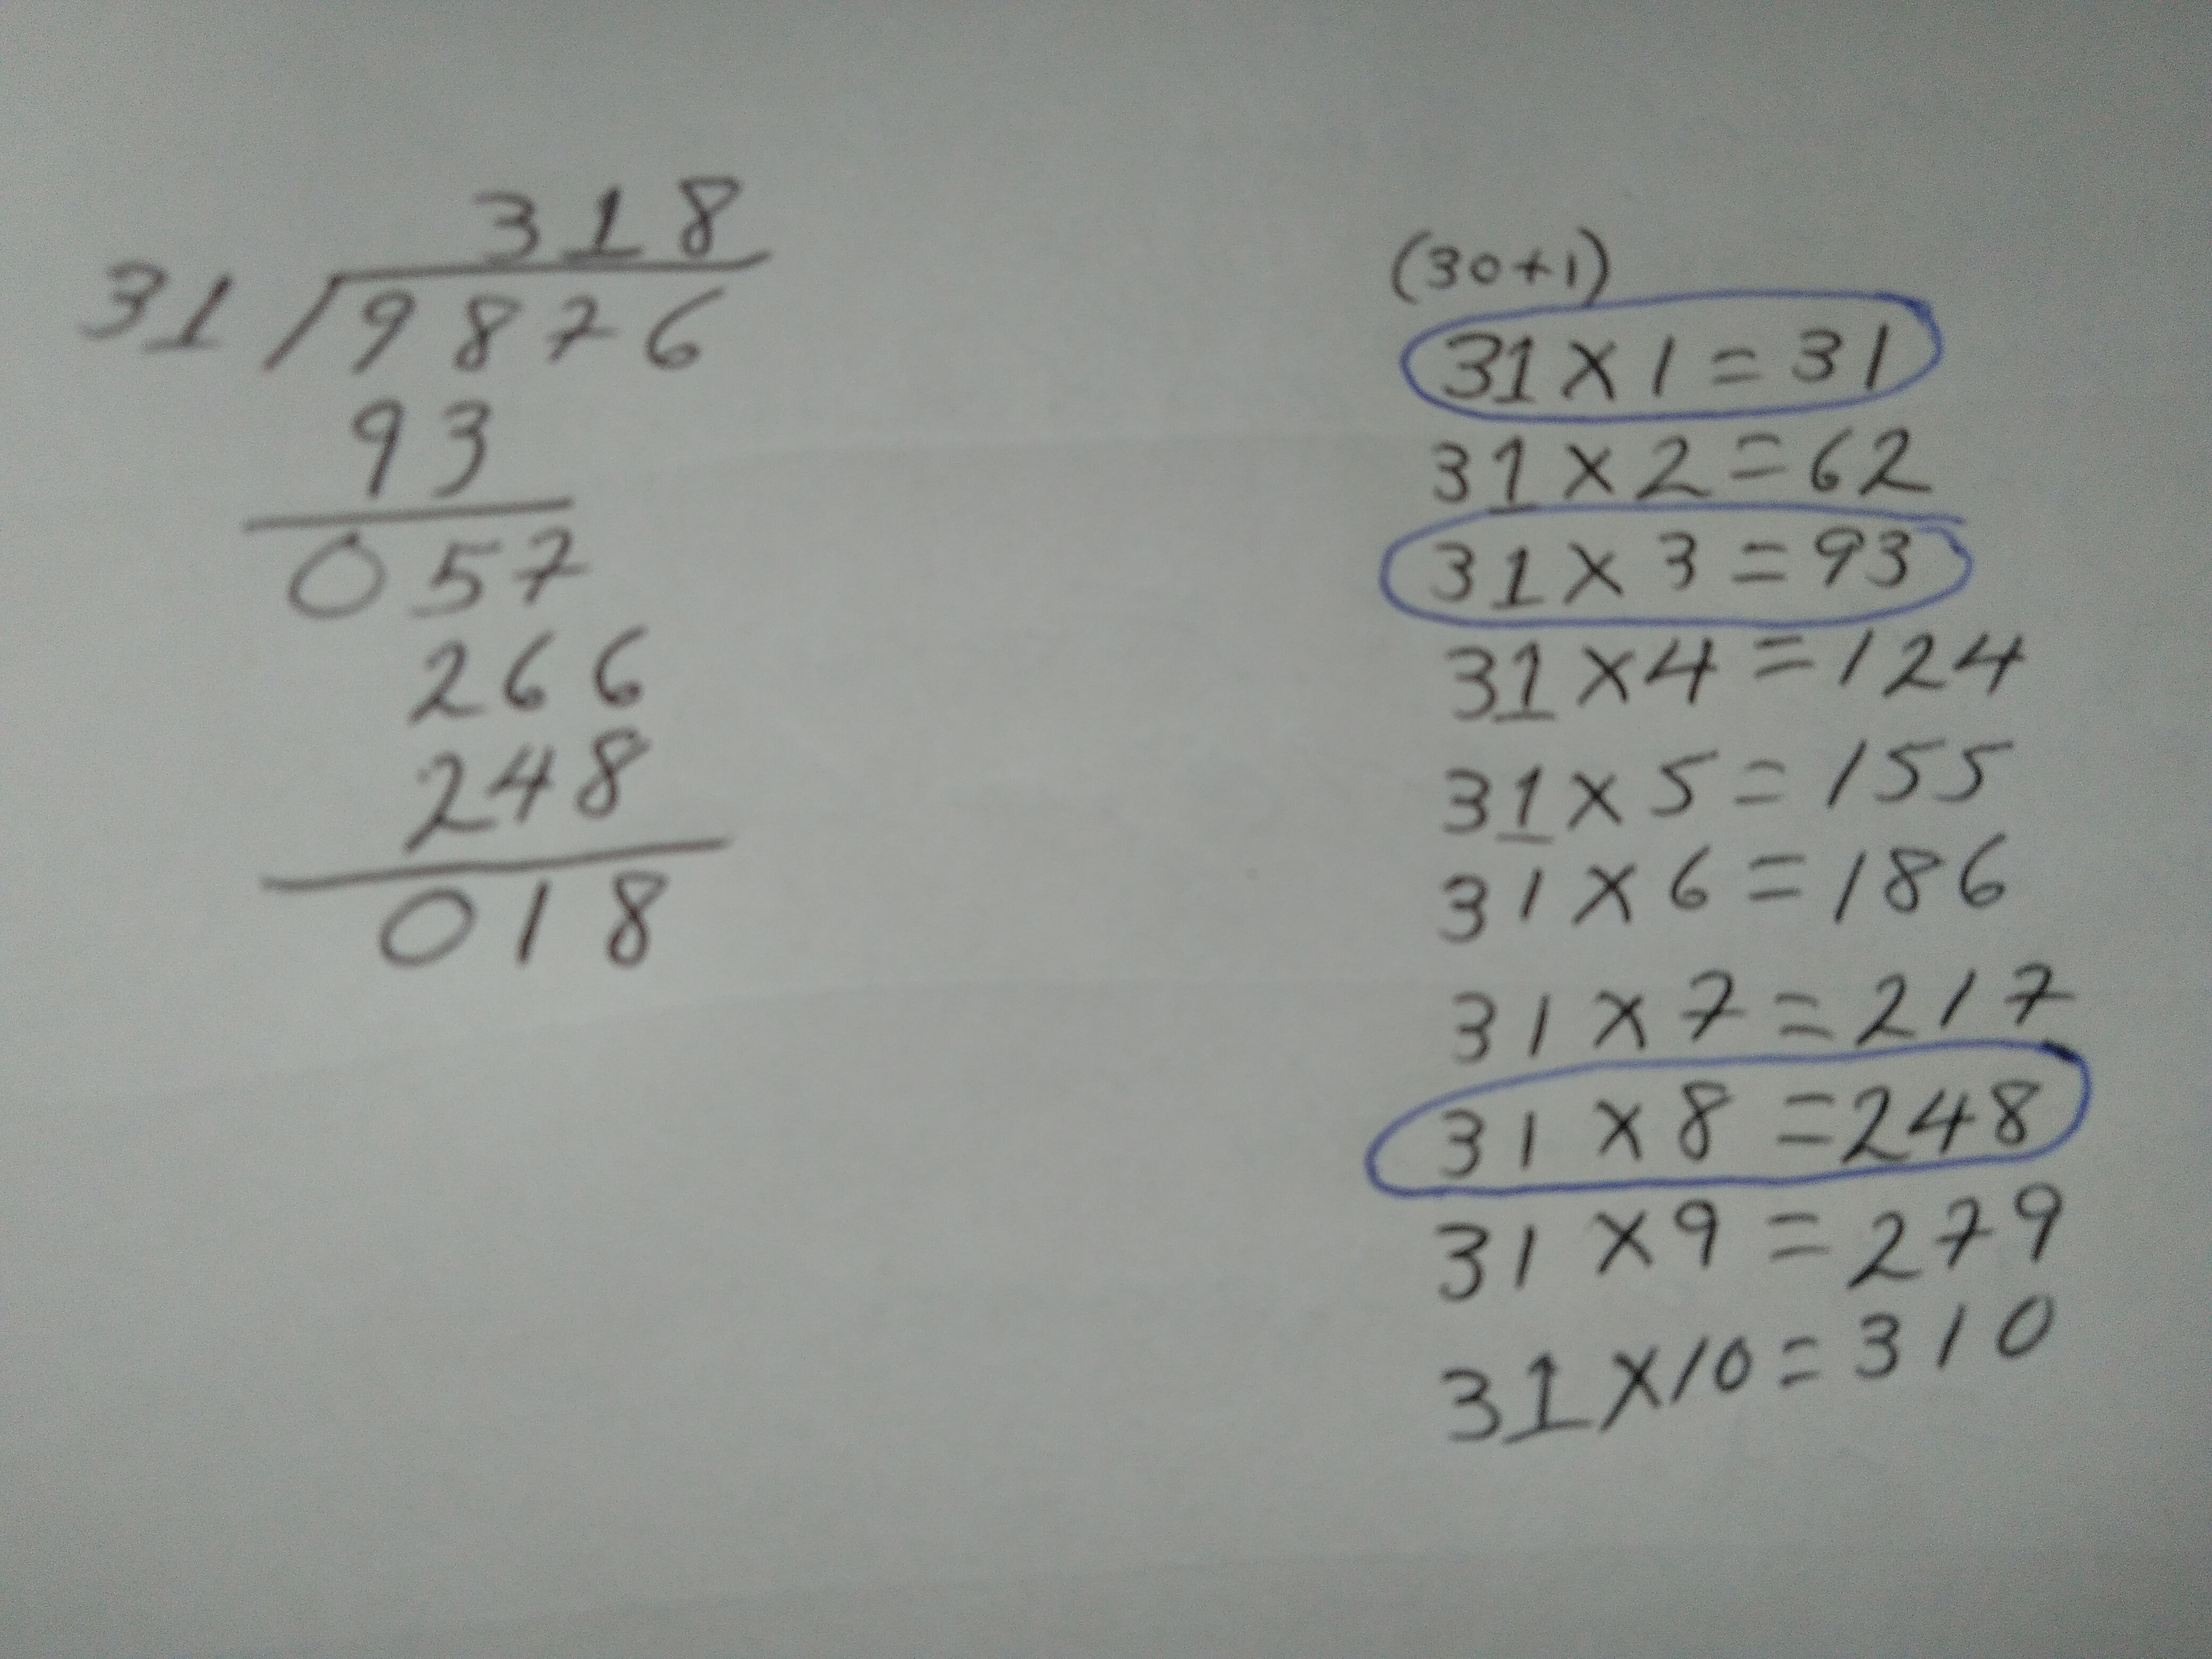 318
31 9876
93
057
266
248
018
(30+1)
31×1=31
31×2=62
31×3=93
31×4=124
31×5=155
31×6=186
31×7=217
31×8=248
31×9=279
31×10=310